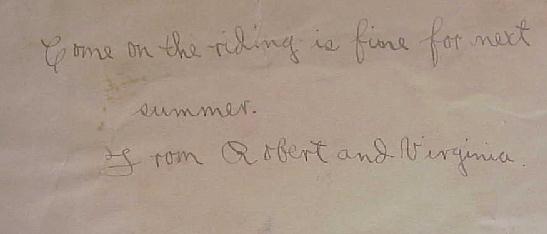 Come on the riding is fine for next
summer.
From Robert and Virginia.